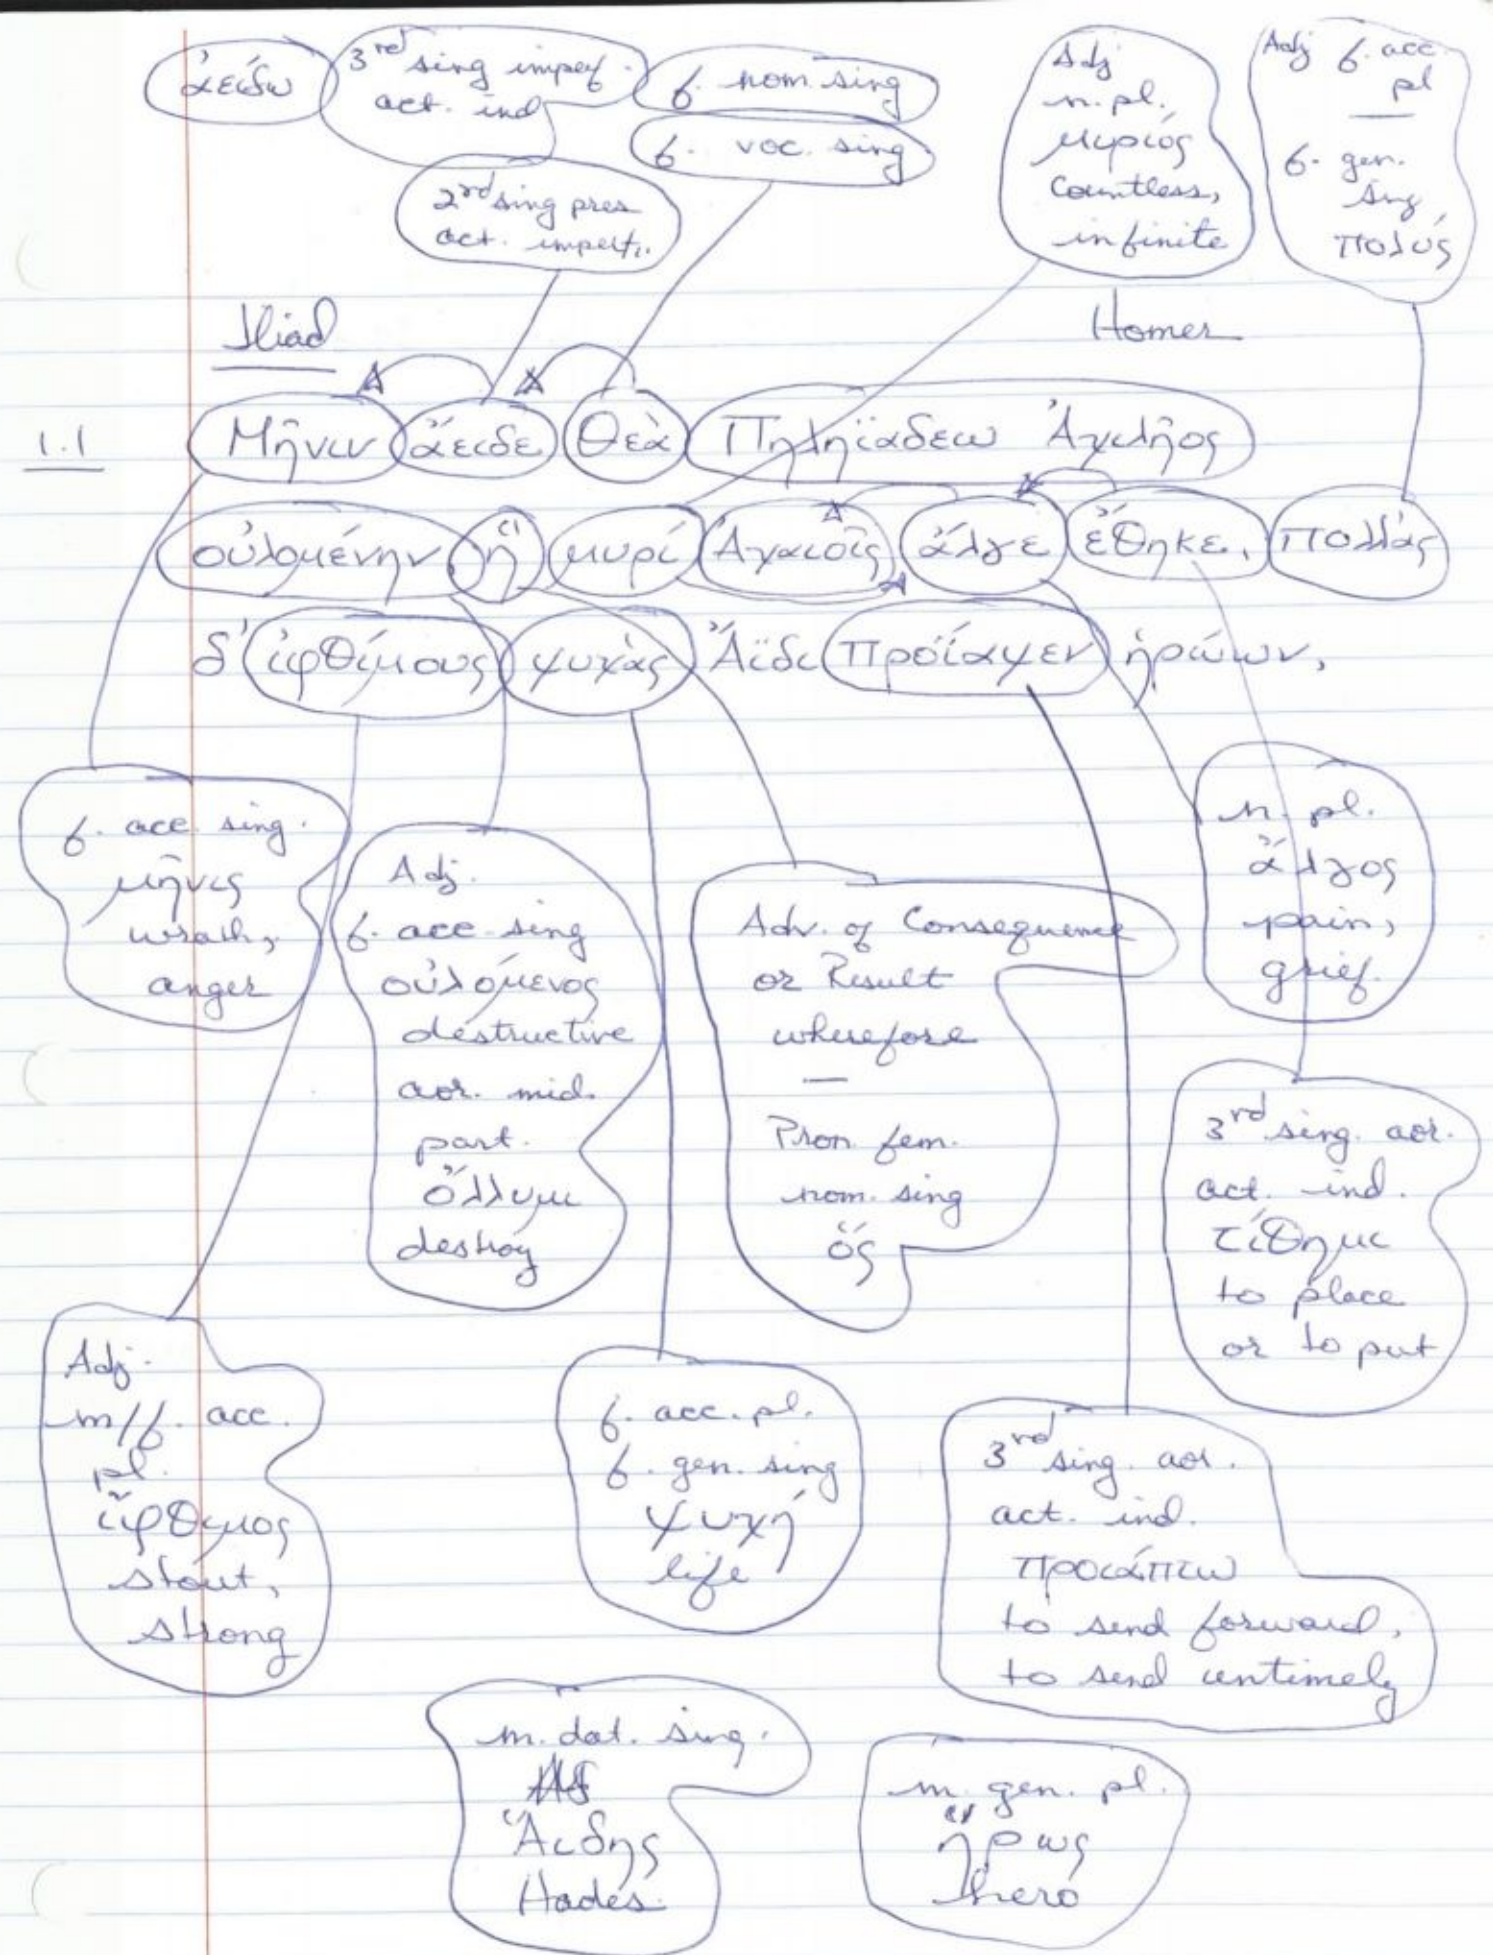 ἀείδω
3rd sing imperf.
act. ind
f. nom. sing
f. voc. sing
2nd sing pres
act. impert.
Adj
n. pl.
μυρίος
countless,
infinite
Adj f. acc.
pl
—
f. gen.
sing
πολύς
Iliad
Homer
1.1
Μῆνιν ἄειδε θεὰ Πηληϊάδεω Ἀχιλῆος
οὐλομένην ἣ μυρί Ἀχαιοῖς ἄλγε ἔθηκε, πολλὰς
δ' ἰφθίμους ψυχὰς Ἄϊδι προΐαψεν ἡρώων,
f. acc. sing.
μῆνις
wrath,
anger
Adj.
f. acc. sing
οὐλόμενος
destructive
aor. mid.
part.
ὄλλυμι
destroy
Adv. of Consequence
or Result
wherefore
—
Pron fem.
nom. sing
ὅς
n. pl.
ἄλγος
pain,
grief.
3rd sing. aor.
act. ind.
τίθημι
to place
or to put
Adj.
m/f. acc.
pl.
ἴφθιμος
stout,
strong
f. acc. pl.
f. gen. sing
ψυχή
life
3rd sing. aor.
act. ind.
προιάπτω
to send forward,
to send untimely
m. dat. sing.
Ἅιδης
Hades
m. gen. pl.
ἥρως
hero